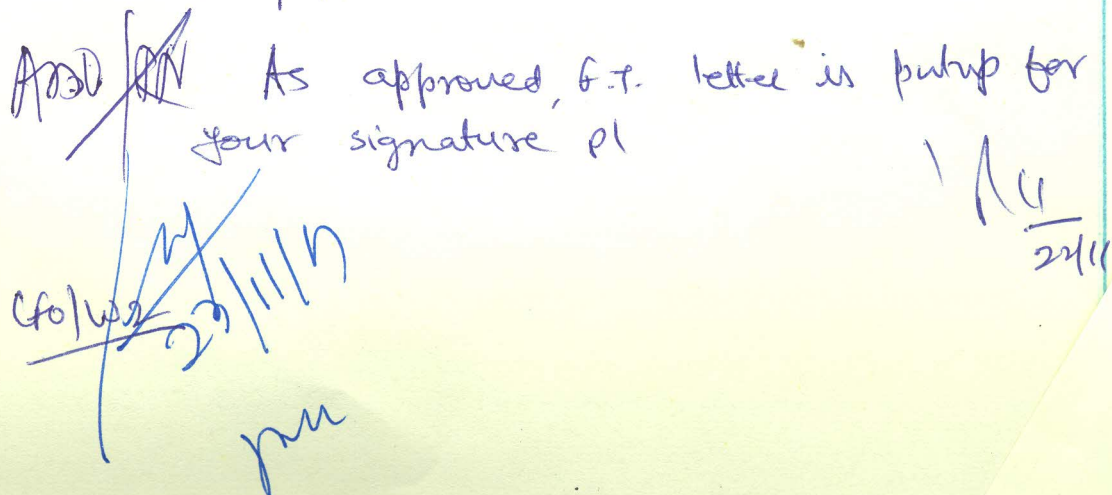 As approved, F.T. letter is putup for
your signature pl
22/11
CFO/WS2
23/11/17